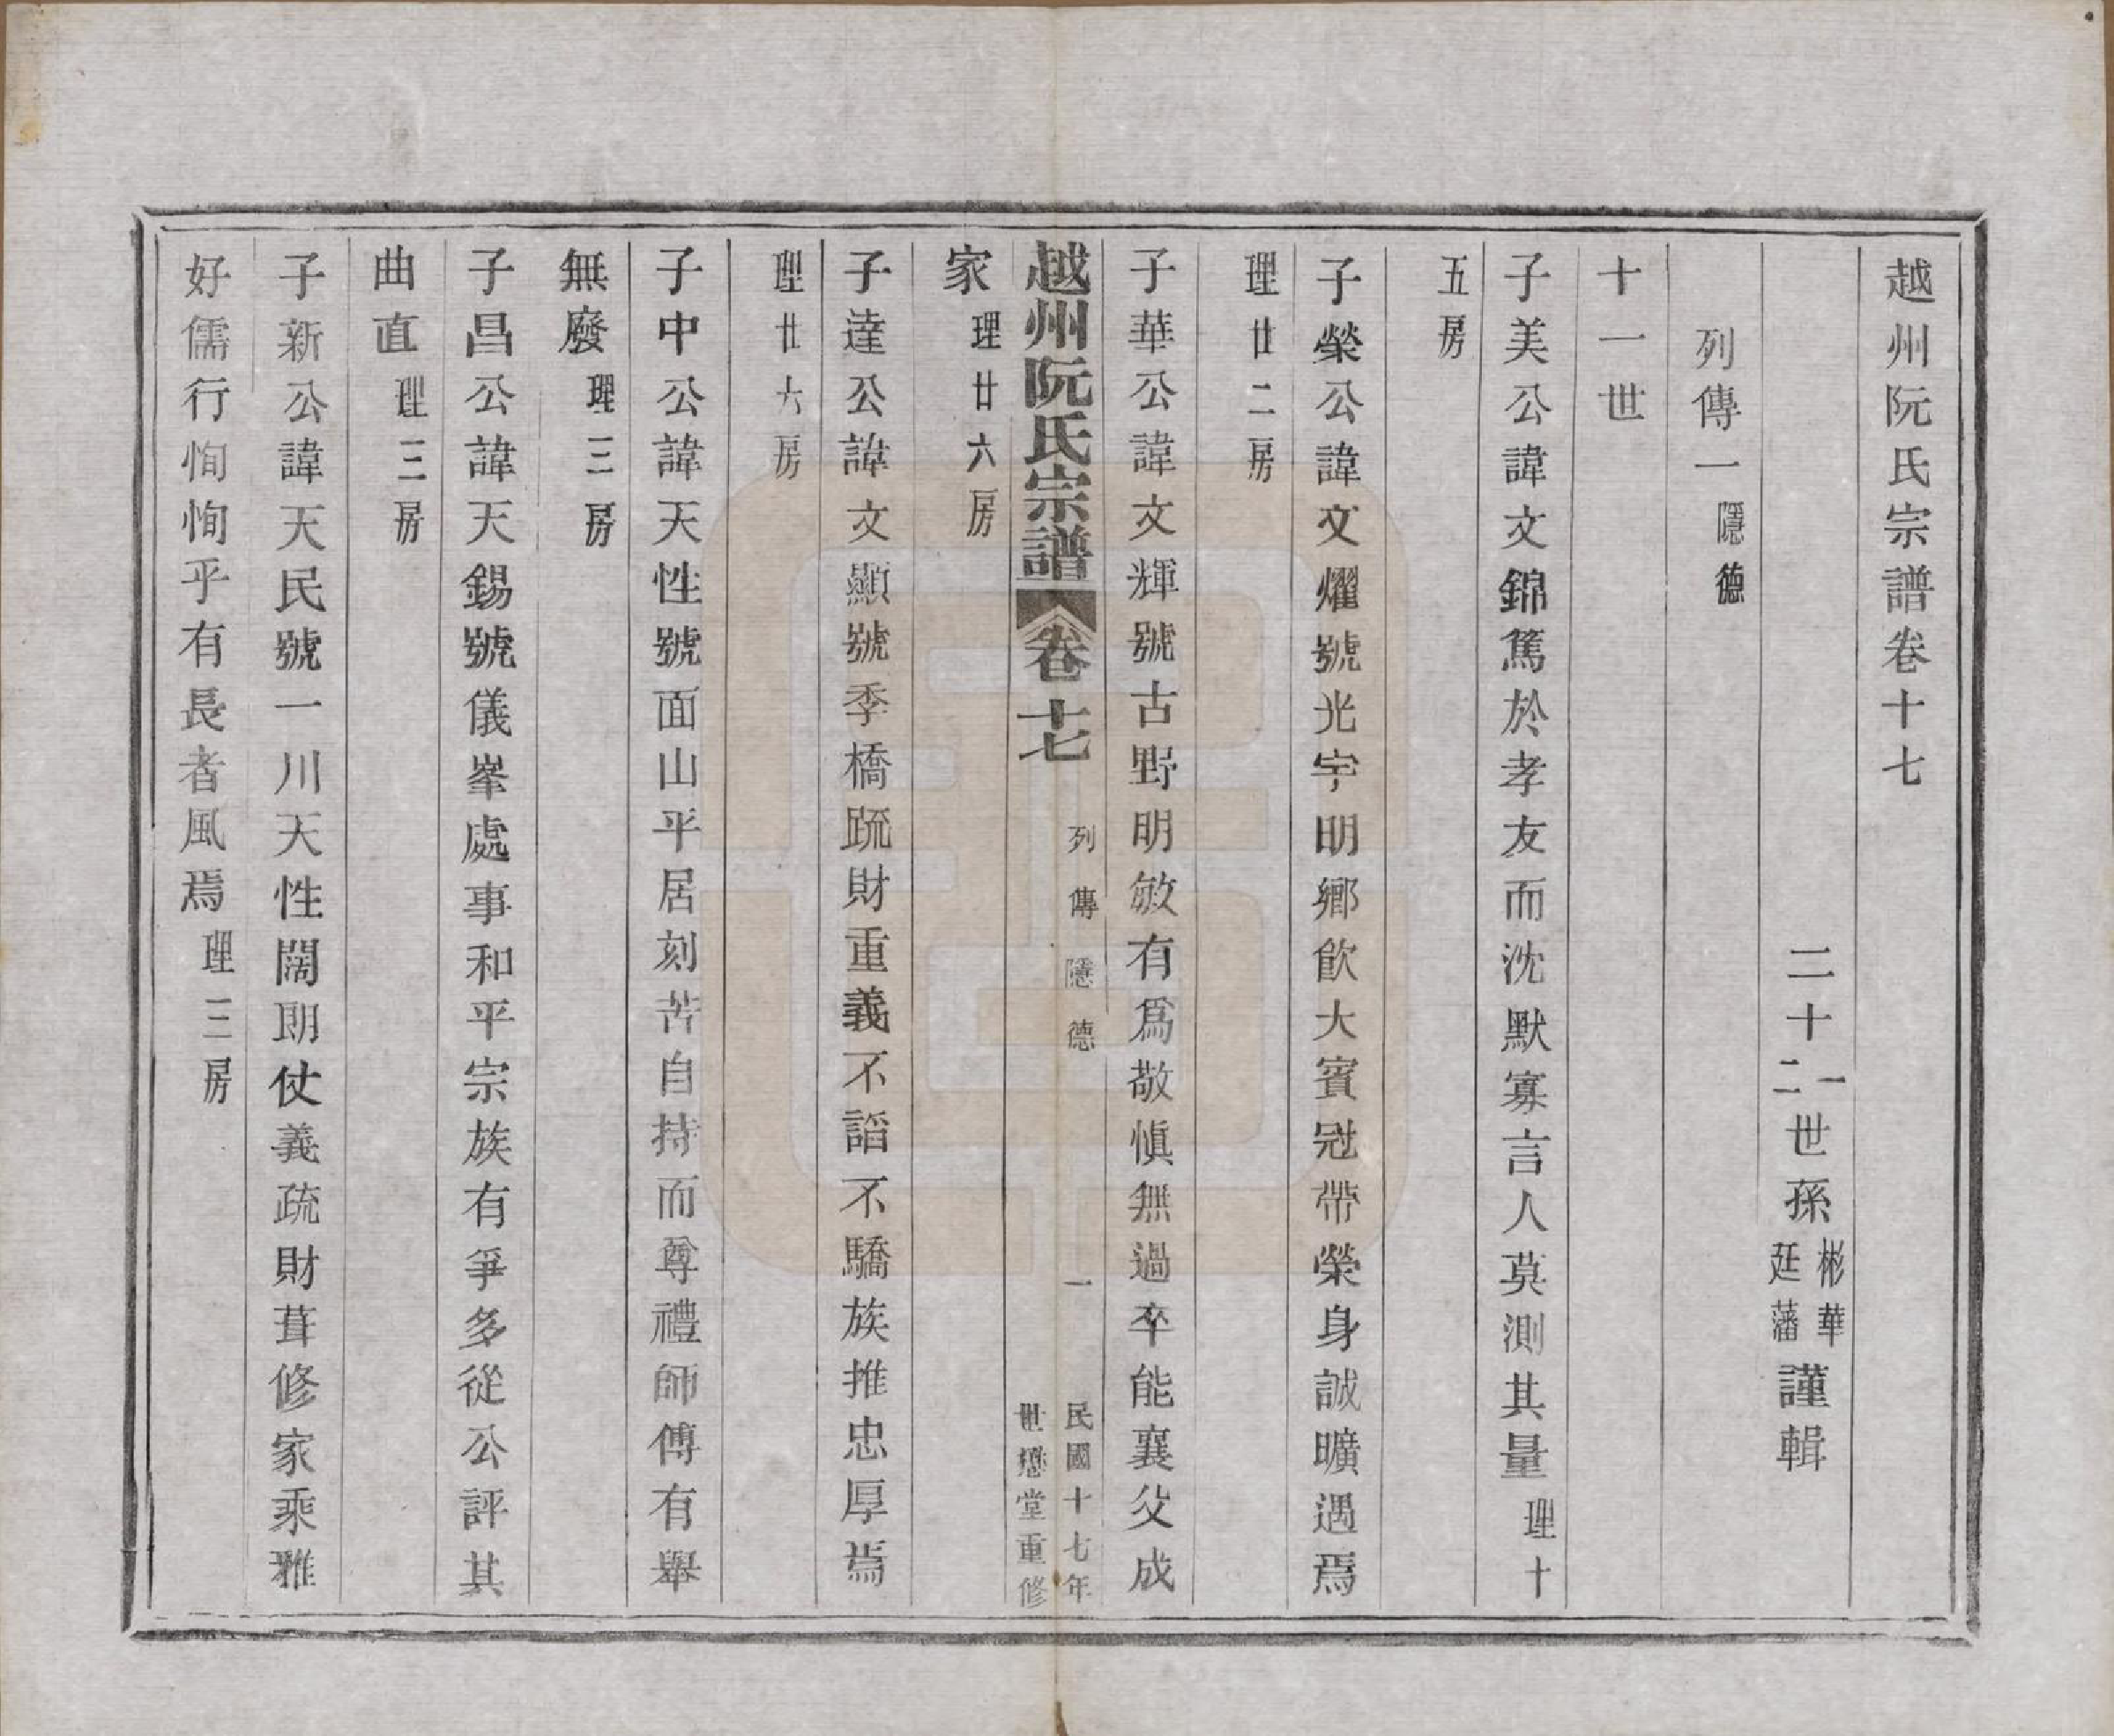 越州阮氏宗譜卷十七
二十一二世孫彬華廷藩謹輯
列傳一隱德
十一世
子美公諱文錦篤於孝友而沈默寡言人莫測其量理十
五房
子榮公諱文燿號光宇明鄉飲大賓冠帶榮身誠曠遇焉
理廿二房
子華公諱文輝號古野明敏有爲敬愼無過卒能襄父成
家理廿六房
越州阮氏宗譜卷十七
列傳隱德
一
民國十七年
世懋堂重修
子達公諱文顯號季橋疏財重義不諂不驕族推忠厚焉
理廿六房
子中公諱天性號面山平居刻苦自持而尊禮師傅有舉
無廢理三房
子昌公諱天錫號儀峯處事和平宗族有爭多從公評其
曲直理三房
子新公諱天民號一川天性闊朗仗義疏財葺修家乘雅
好儒行恂恂乎有長者風焉理三房